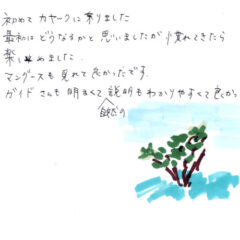 初めて カヤークに乗りました
最初は どうなるかと 思いましたが 慣れてきたら
楽しめました.
マングースも 見れて 良かったです.
ガイドさんも 明るくて 説明も わかりやすくて 良かっ
自然の